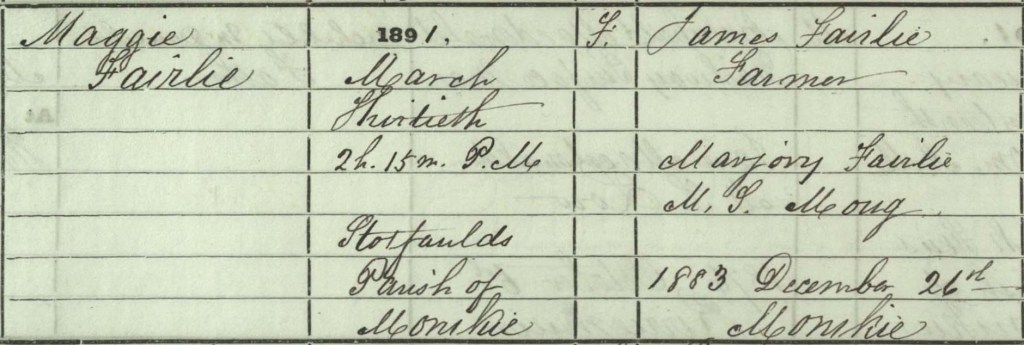 Maggie
Fairlie
1891.
March
Thirtieth
2h. 15m. P.M
Parish of
Monikie
F.
James Fairlie
Farmer
Marjory Fairlie
M. S. Moug
1883 December 26th
Monikie